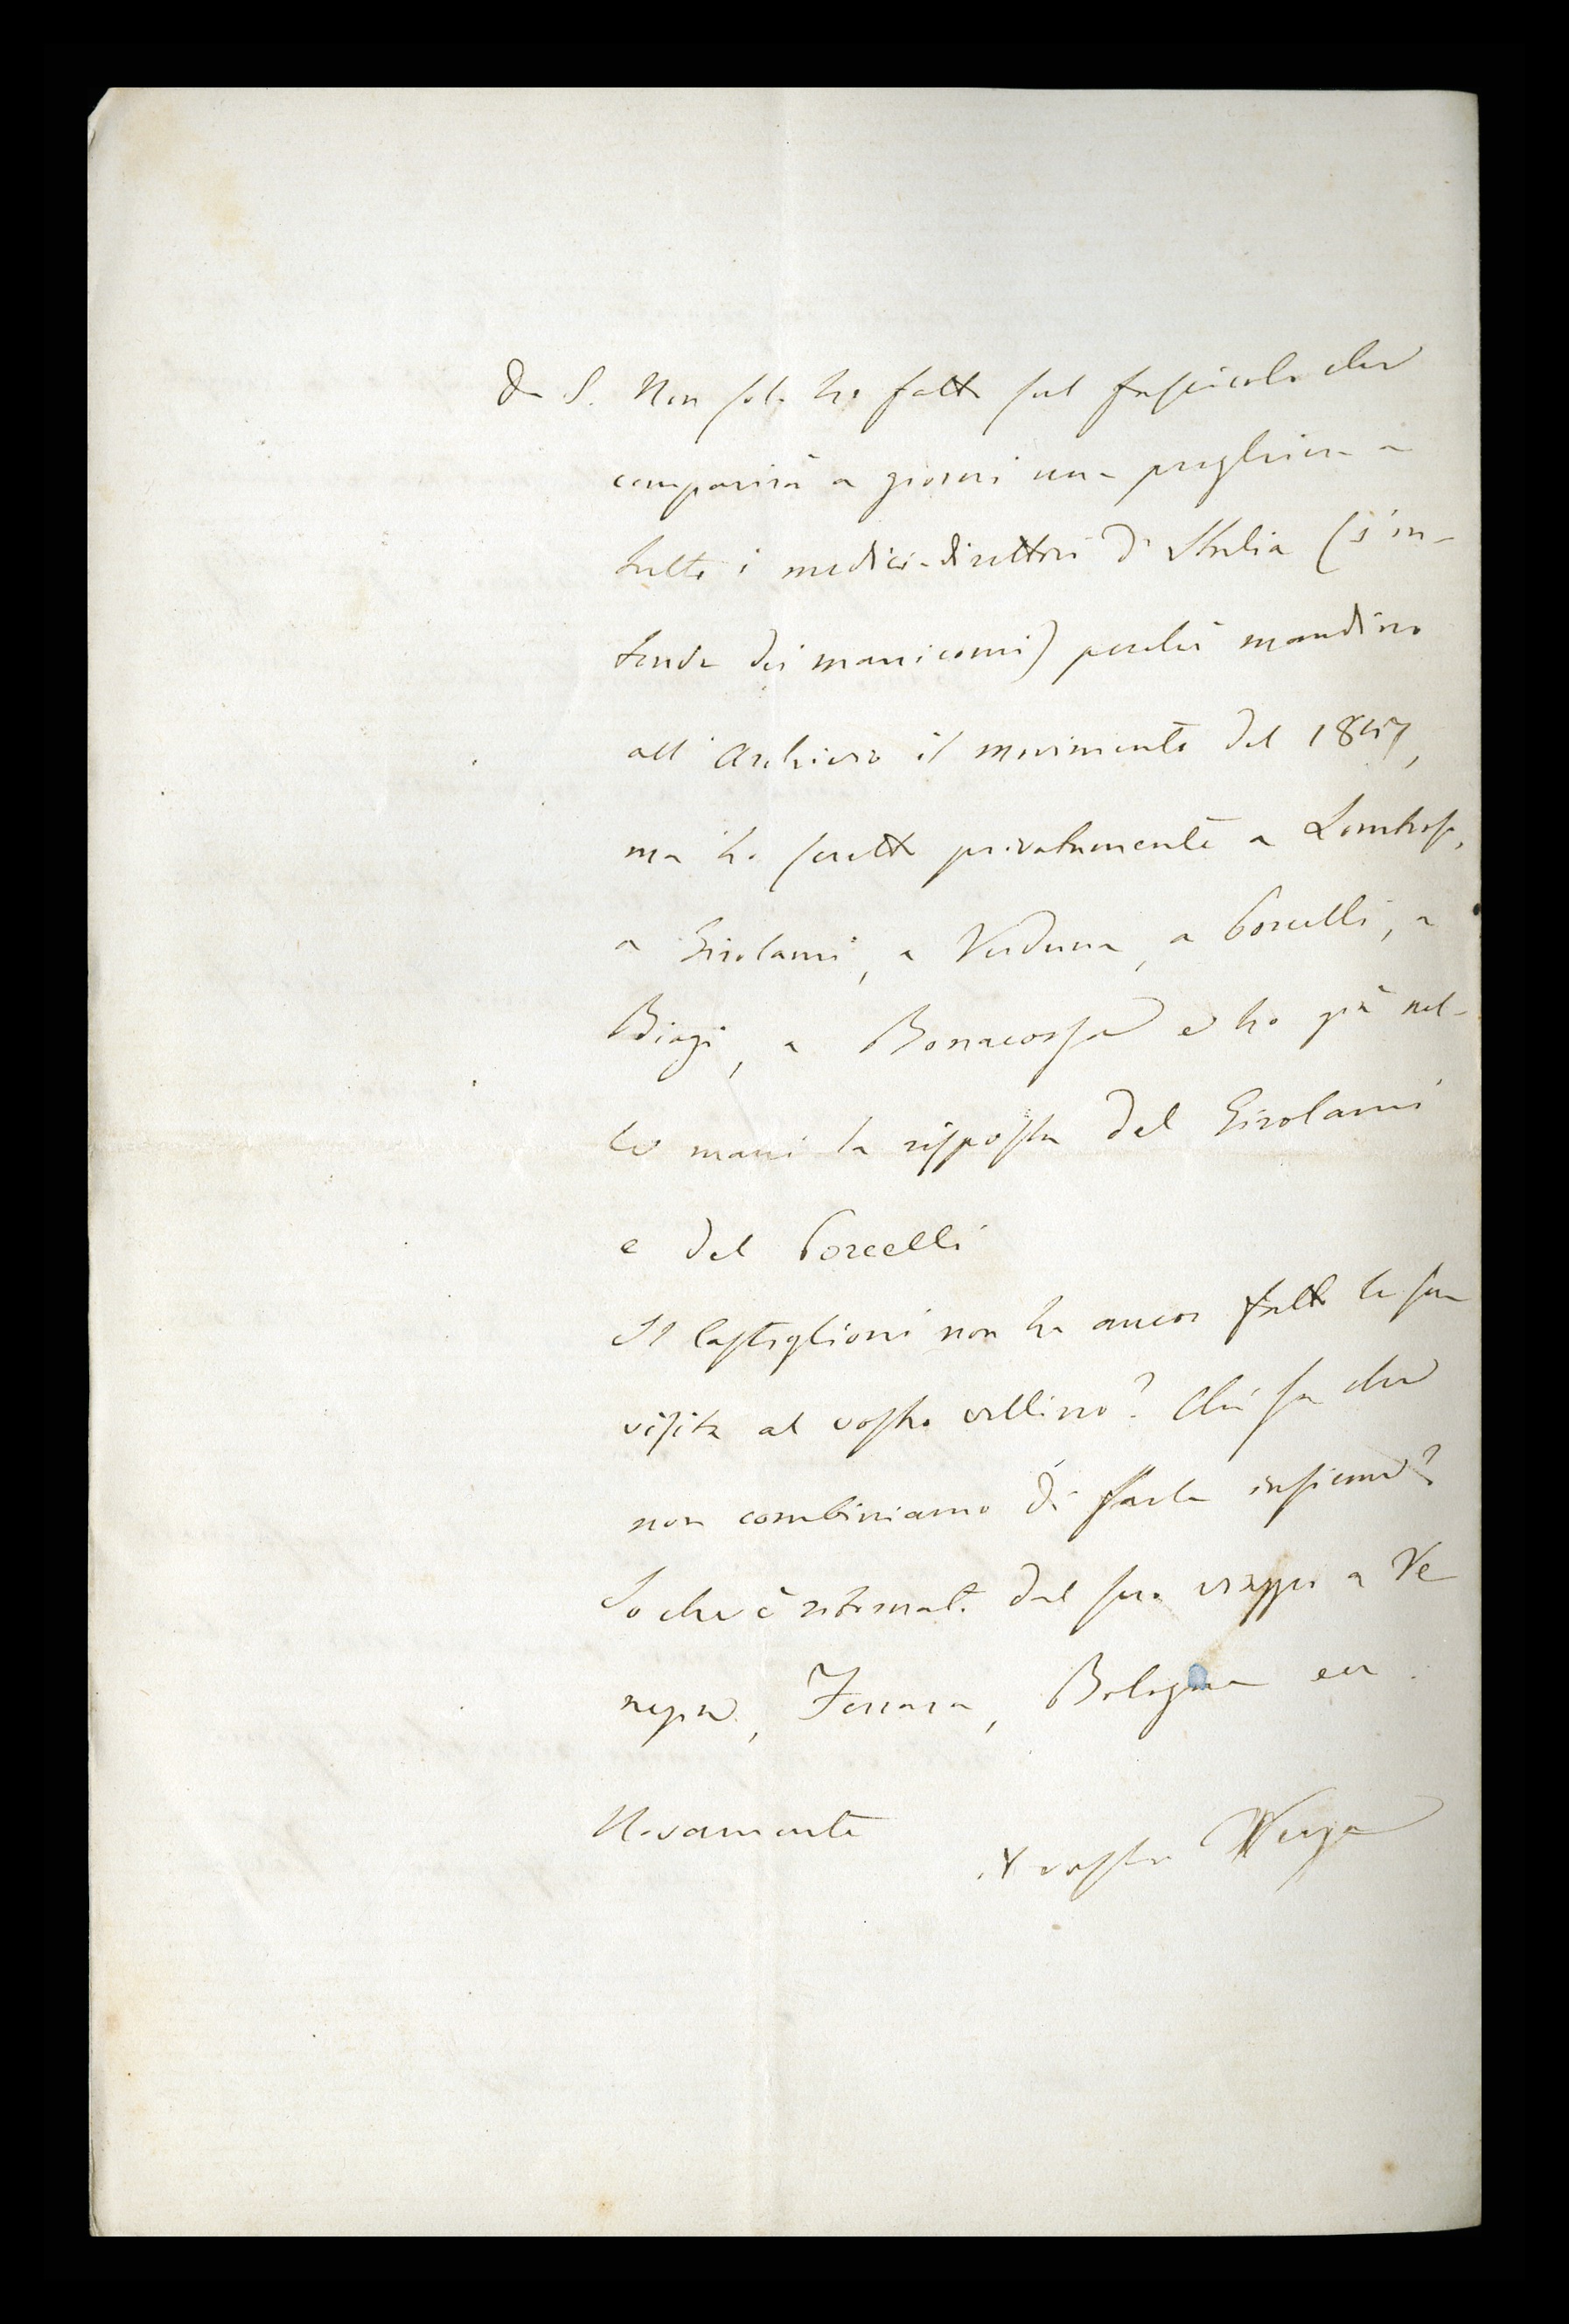 D. S. Non solo ho fatto sul fascicolo che
comparirà a giorni una preghiera a
tutti i medici-direttori d'Italia (s'in-
tende dei manicomi) perchè mandino
all'Archivio il movimento del
ma ho scritto privatamente a Lombroso,
a Girolami, a Verduna, a Porcelli, a
Biagi, a Bonacossa e ho già nel-
le mani la risposta del Girolami
e del Porcelli
Il Castiglioni non ha ancor fatto la sua
visita al vostro collino? Chi sa che
non combiniamo di farla insieme?
So che è ritornato dal suo viaggio a Ve
nezia, Ferrara, Bologna ecc.
Novamente
Il vostro Verga